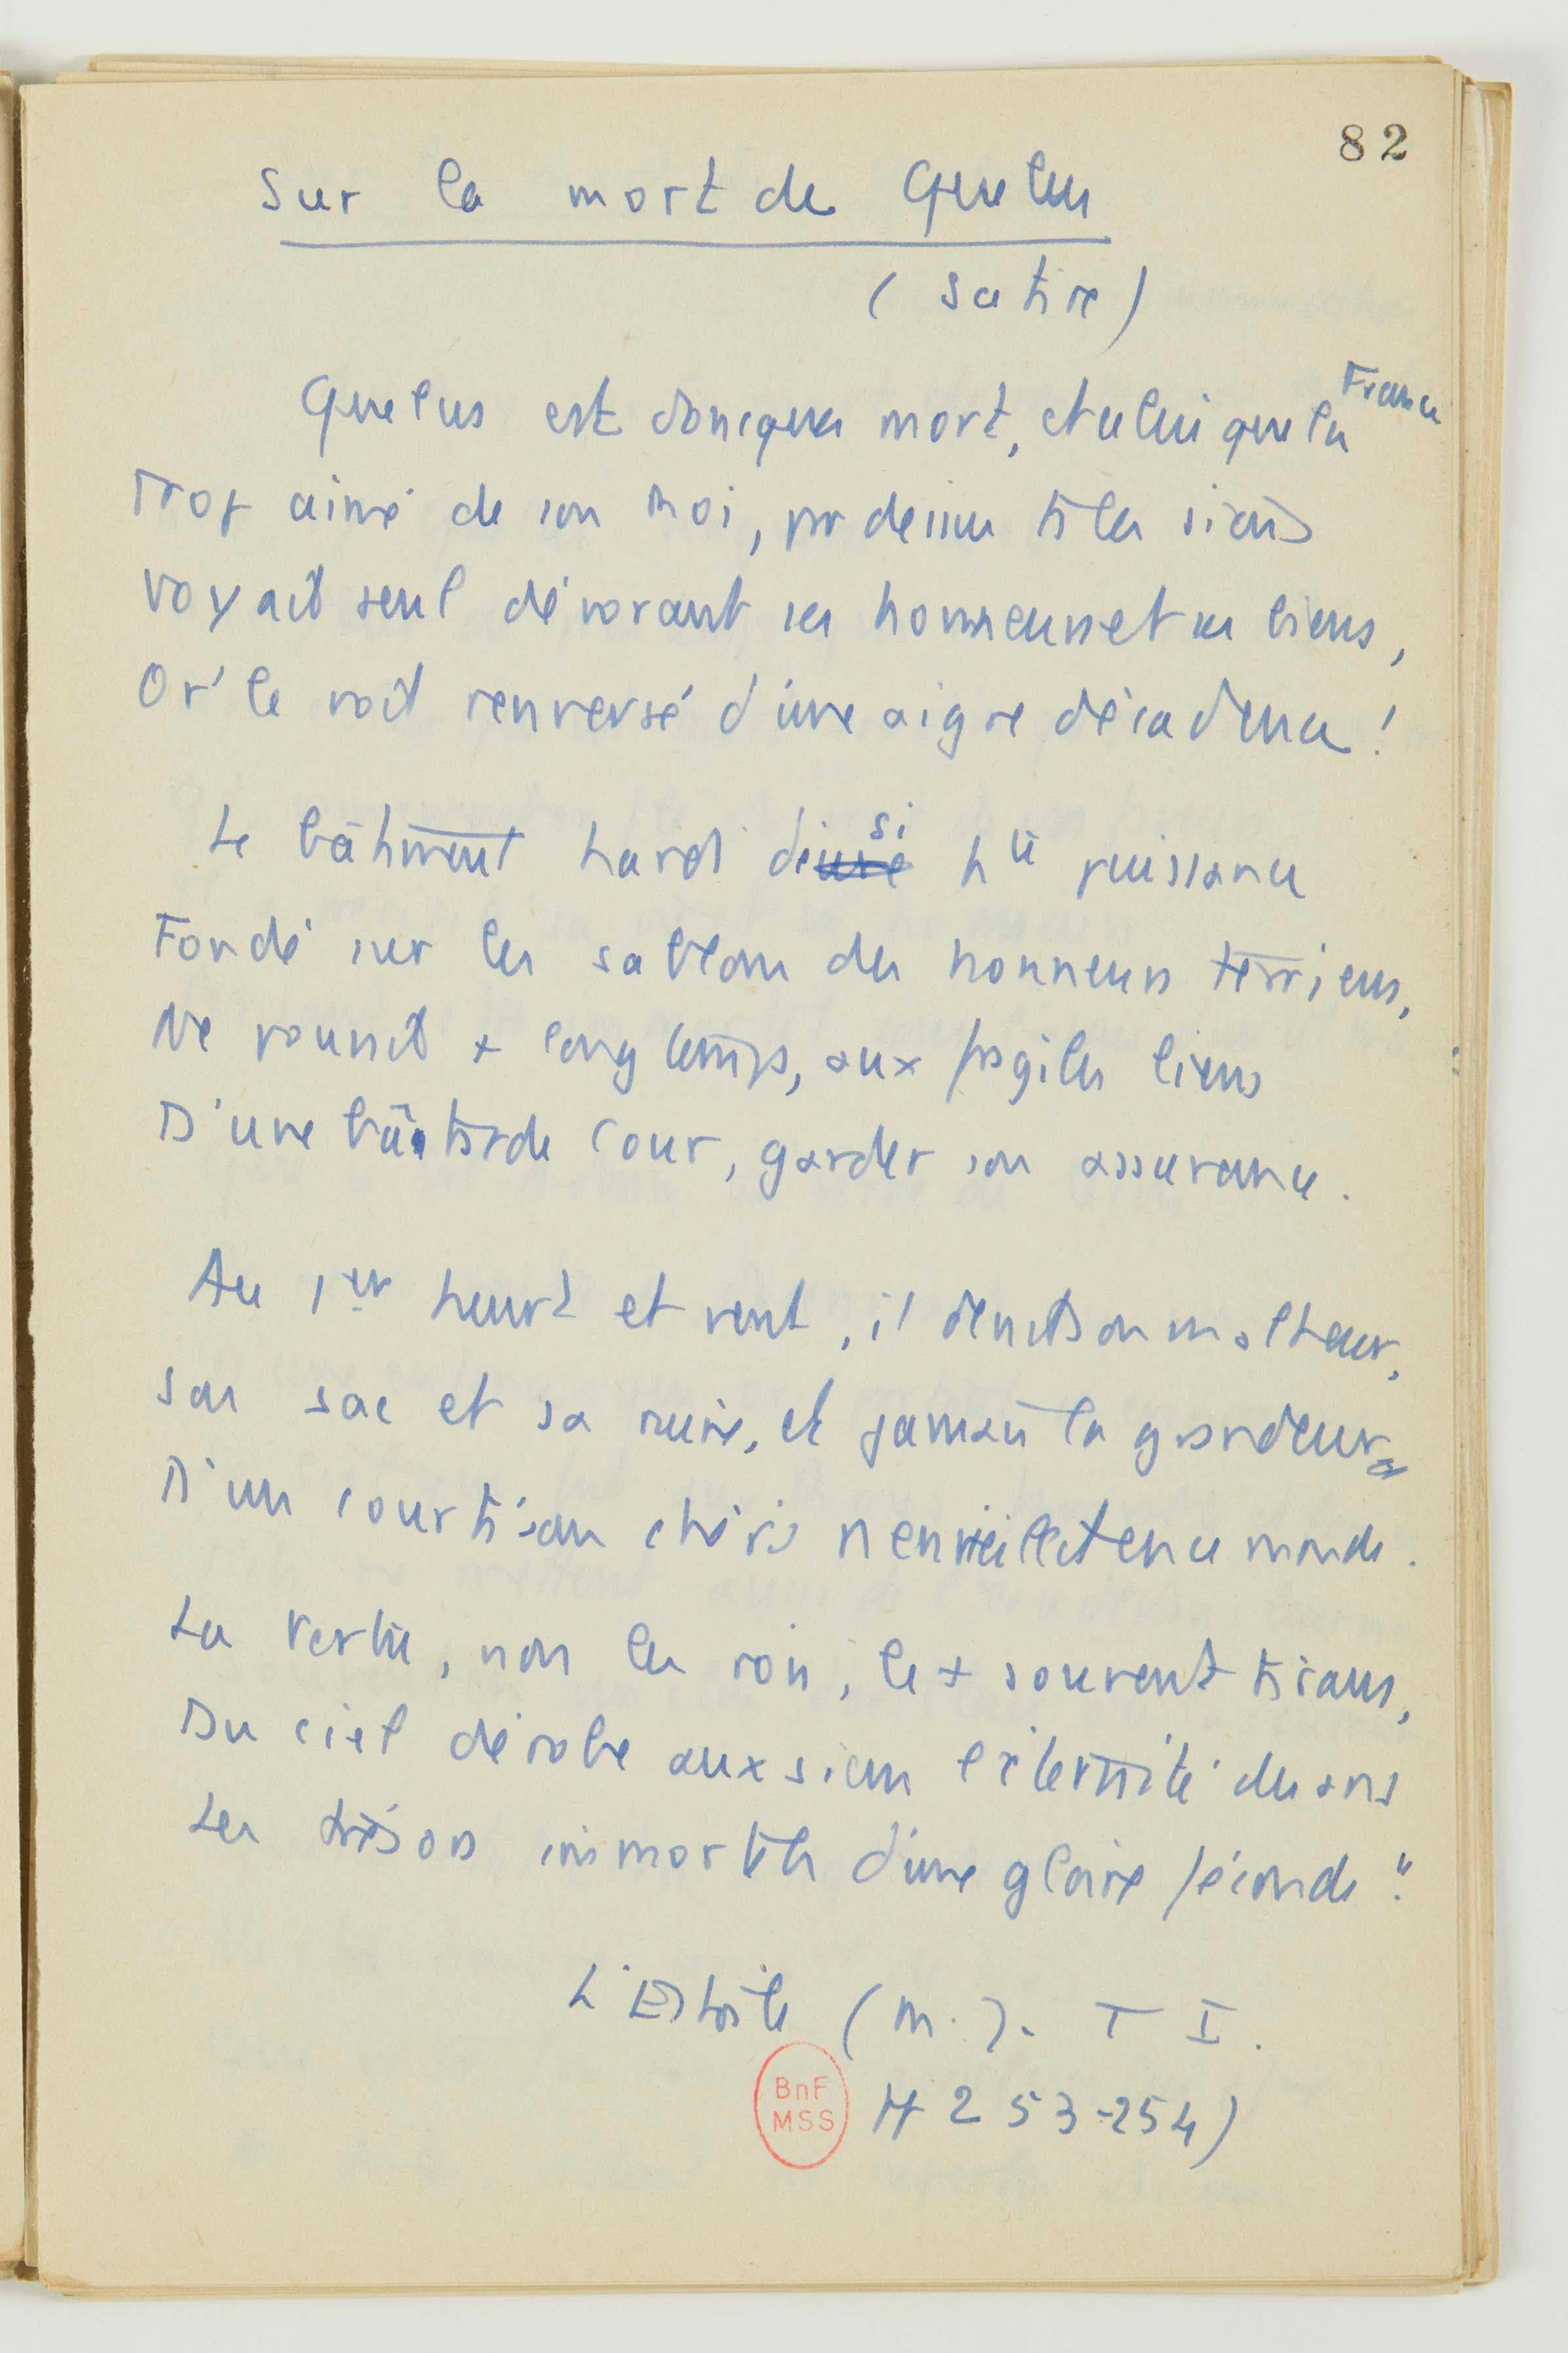 82
Sur la mort de Quelus
(Satire)
Quelus est doncques mort, et celui que la France
Trop aimé de son Roi, par dessus ts les siens
Voyait seul dévorant ses honneurs et ses biens,
Or' le voit renversé d'une aigre décadence !
Le bâtiment hardi de si hte puissance
Fondé sur les sablons des honneurs terriens,
Ne pouvait + longtemps, aux fragiles liens
D'une bâtarde Cour, garder son assurance.
Au 1er heurt et vent, il sent son malheur,
Son sac et sa ruine, et jamais la grandeur
D'un courtisan chéri n'envieillit en ce monde.
La Vertu, non les rois, le + souvent tirans,
Du ciel dérobe aux siens l'éternité des ans
Les trésors immortels d'une gloire féconde".
L'Estoile (M.J. T I.
BnF
MSS
H 253-254)